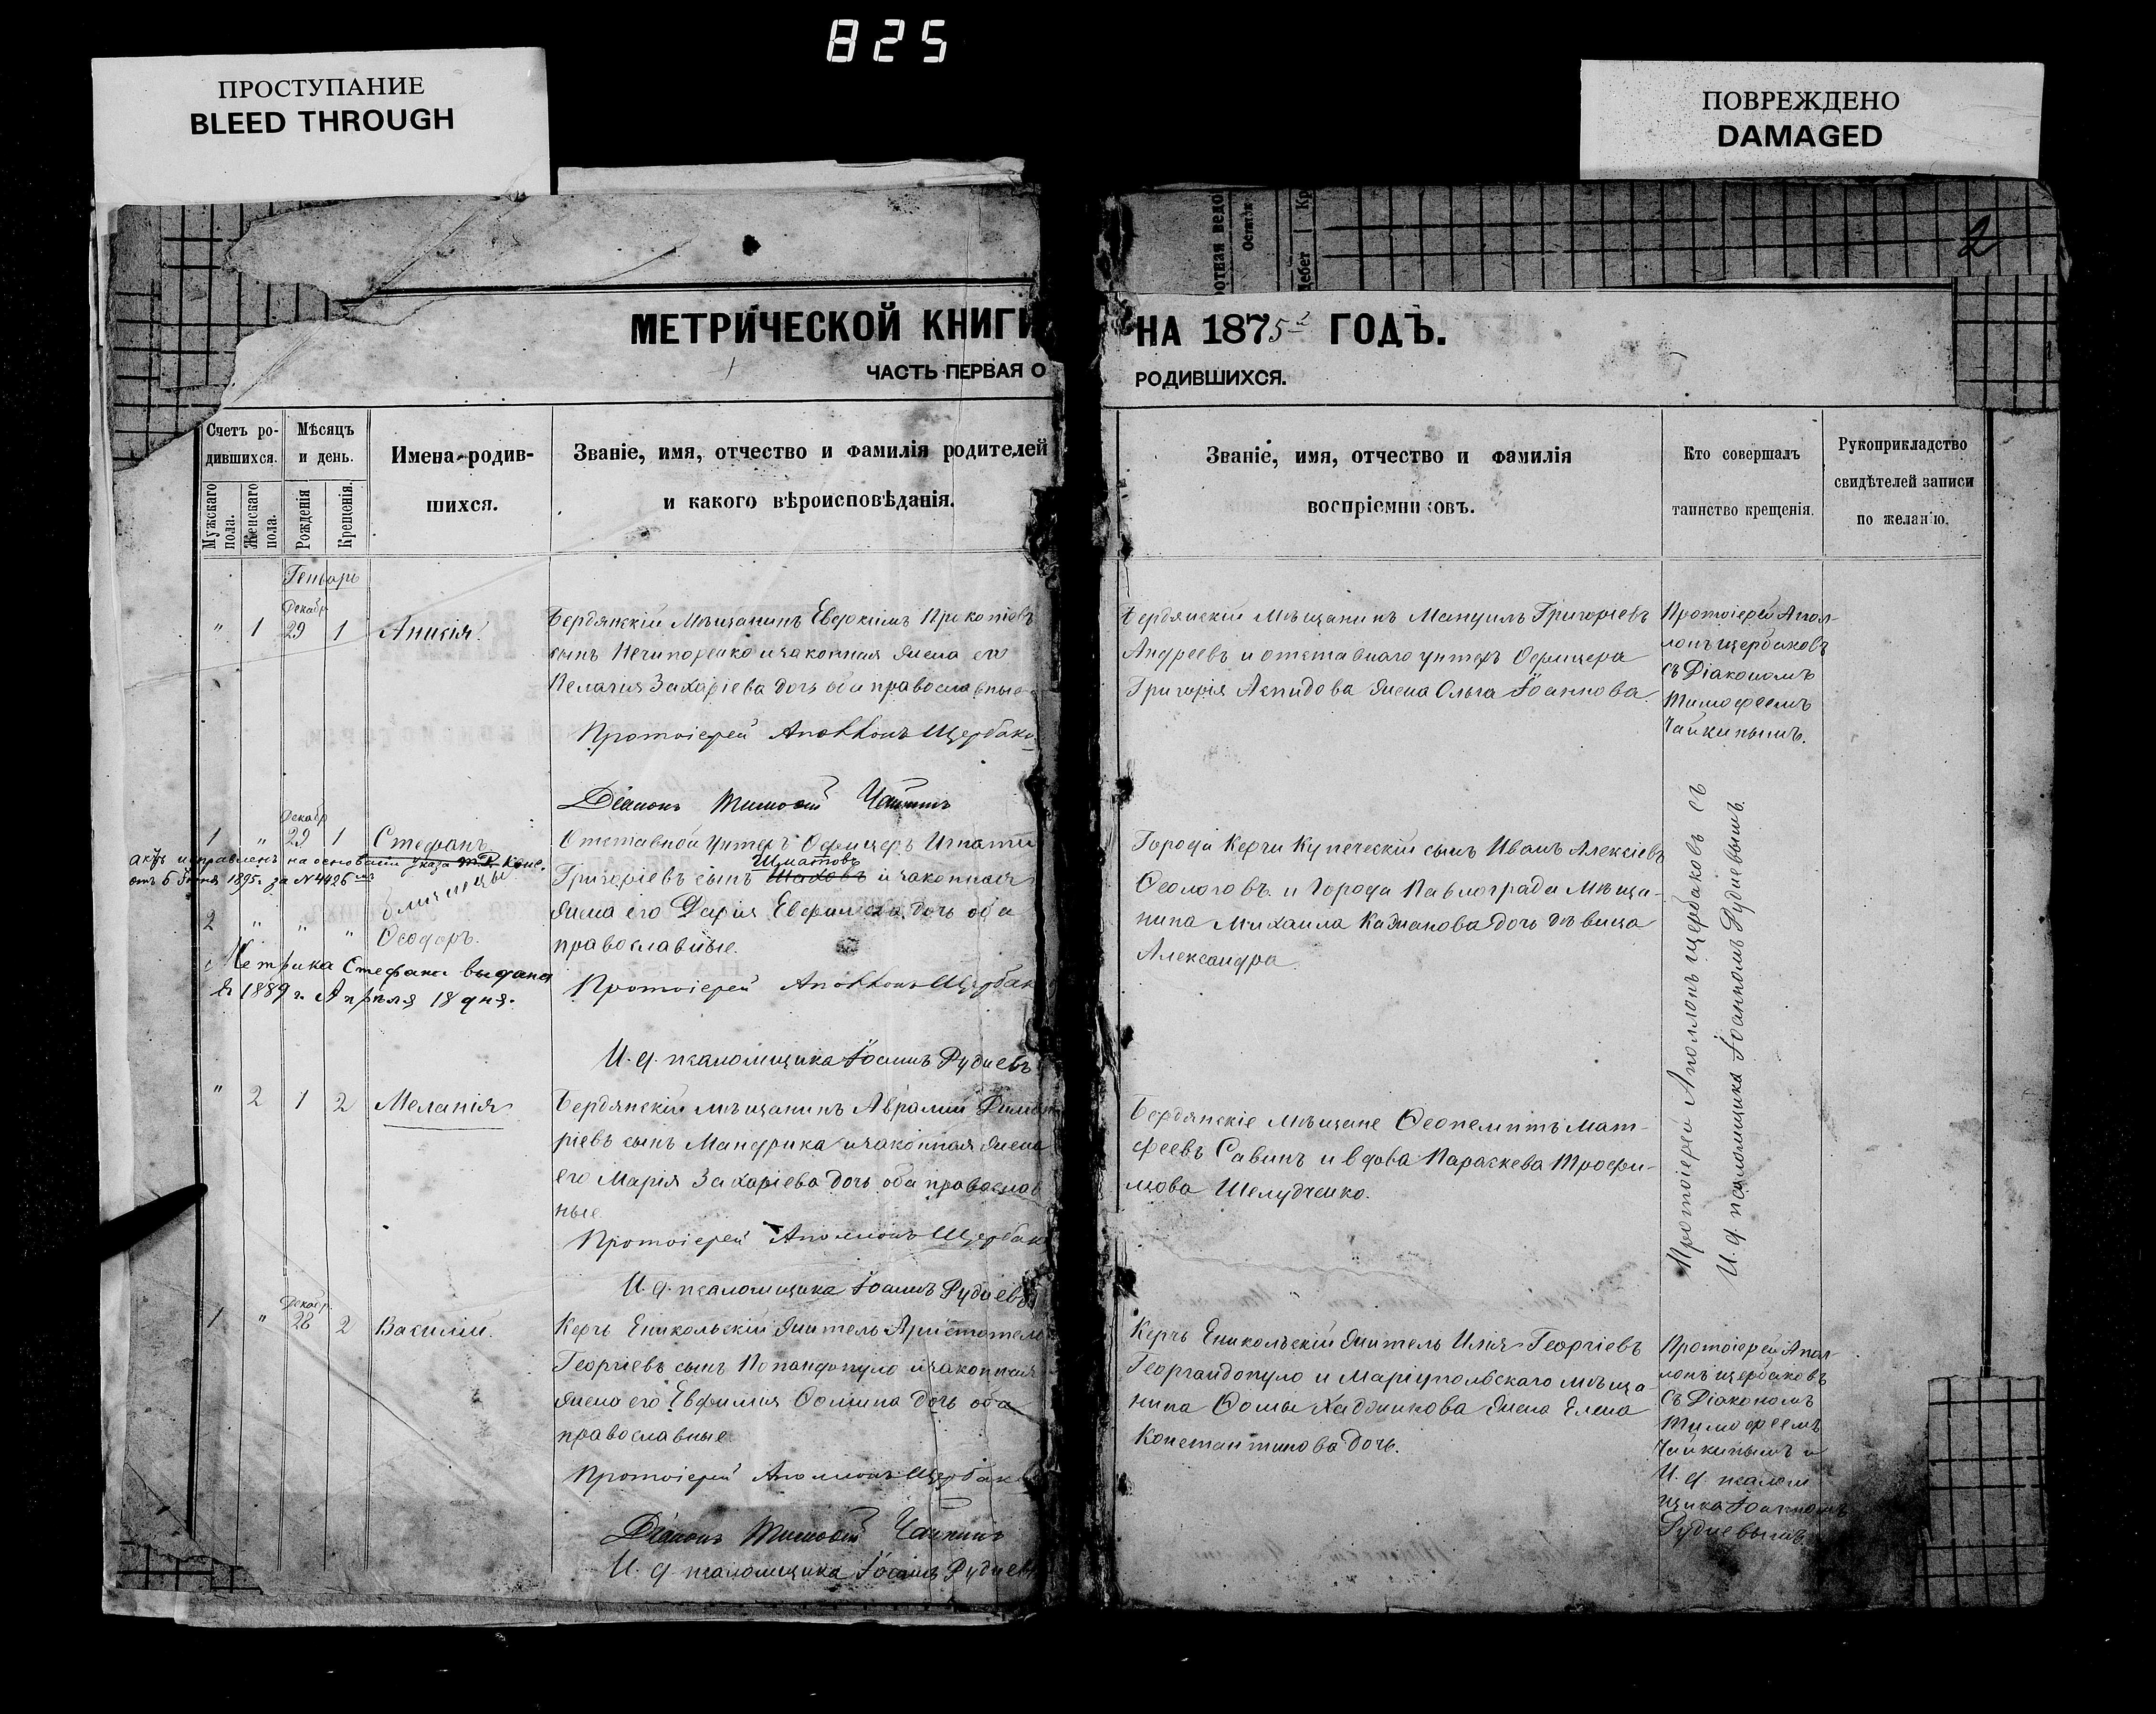 825
ПРОСТУПАНИЕ
BLEED THROUGH
ПОВРЕЖДЕНО
DAMAGED
2
МЕТРИЧЕСКОЙ КНИГИ
ЧАСТЬ ПЕРВАЯ О
Счетъ ро-
дившихся.
Мужскаго пола.
Женскаго пола.
Мѣсяцъ
и день.
Рожденія
Крещенія.
Имена родив-
шихся.
Званіе, имя, отчество и фамилія родителей
и какого вѣроисповѣданія.
Генварь
Декабр
" 1 29 1 Анисія.
Бердянскій Мѣщанинъ Евдокимъ Прокопіевъ
сынъ Нечипоренко и законная жена его
Пелагия Захаріева дочь оба православные
Протоіерей Аполлонъ Щербако
Діаконъ Тимофей Чайкинъ
Декабр
1 " 29 1 Стефанъ
Отставной унтеръ Офицеръ Игнатій
актъ исправленъ на основаніи указа Т.Д. Конс.
отъ 6 Іюня 1895 г. за № 4426
близнецы
Шматовъ
Григоріевъ сынъ Шаховъ и законная
2 " " " Ѳеодоръ.
жена его Дарія Евфимова дочь оба
православные.
Метрика Стефана выдана
1889 г. Апрѣля 18 дня.
Протоіерей Аполлонъ Щербак
И. д. псаломщика Іоаннъ Рудиевъ
" 2 1 2 Меланія
Бердянскій мѣщанинъ Аврамій Димит
ріевъ сынъ Мандрика и законная жена
его Марія Захаріева дочь оба православ
ные.
Протоіерей Аполлонъ Щербак
И. д. псаломщика Іоаннъ Рудиевъ
Декабр.
1 " 28 2 Василій.
Керчь Еникольскій житель Аристотель
Георгіевъ сынъ Попандопуло и законная
жена его Евфимія Ѳомина дочь оба
православные
Протоіерей Аполлонъ Щербак
Діаконъ Тимофей Чайкинъ
И. д. псаломщика Іоаннъ Рудиев
НА 1875й ГОДЪ.
РОДИВШИХСЯ.
Званіе, имя, отчество и фамилія
воспріемниковъ.
Кто совершалъ
таинство крещенія.
Рукоприкладство
свидѣтелей записи
по желанію.
Бердянскій Мѣщанинъ Мануилъ Григоріевъ
Андреевъ и отставнаго унтеръ Офицера
Григорія Аспидова жена Ольга Іоаннова.
Протоіерей Апол-
лонъ Щербаковъ
съ Діакономъ
Тимофеемъ
Чайкинымъ.
Города Керчи Купеческій сынъ Иванъ Алексіевъ
Ѳеологовъ и Города Павлограда Мѣща-
нина Михаила Казнакова дочь дѣвица
Александра
Бердянскіе Мѣщане Ѳеопемптъ Мат-
феевъ Савинъ и вдова Параскева Трофи-
мова Шелудченко.
Протоіерей Аполлонъ Щербаковъ съ
И. д. псаломщика Іоанномъ Рудиевымъ.
Керчь Еникольскій житель Илія Георгіевъ
Георгандопуло и Маріупольскаго мѣща-
нина Ѳомы Хаджинова жена Елена
Константинова дочь.
Протоіерей Апол-
лонъ Щербаковъ
съ Діакономъ
Тимофеемъ
Чайкинымъ и
И. д. псалом
щика Іоанномъ
Рудиевымъ.